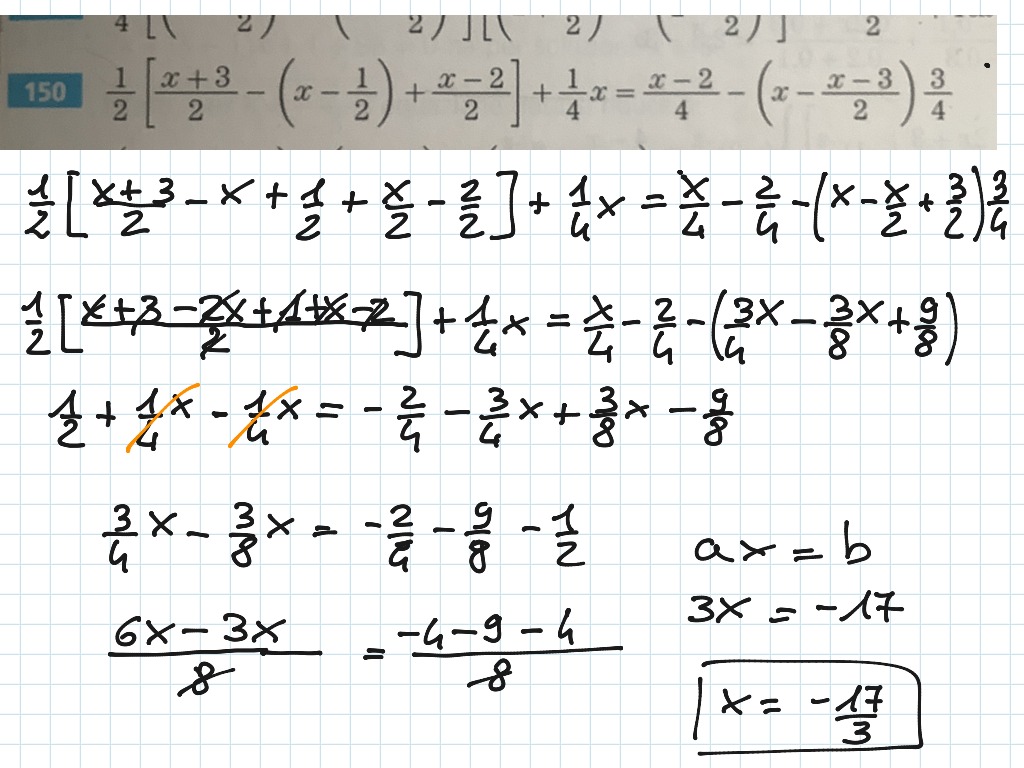 4 [( 2) ( 2) ] [( 2) ( 2) ] 2
150 1/2 [ (x+3)/2 − (x − 1/2) + (x−2)/2 ] + 1/4 x = (x−2)/4 − (x − (x−3)/2) 3/4
1/2 [ (x+3)/2 − x + 1/2 + x/2 − 2/2 ] + 1/4 x = x/4 − 2/4 − (x − x/2 + 3/2) 3/4
1/2 [ (x+3−2x+1+x−2)/2 ] + 1/4 x = x/4 − 2/4 − (3/4 x − 3/8 x + 9/8)
1/2 + 1/4 x − 1/4 x = − 2/4 − 3/4 x + 3/8 x − 9/8
3/4 x − 3/8 x = − 2/4 − 9/8 − 1/2
(6x − 3x)/8 = (−4 − 9 − 4)/8
ax = b
3x = −17
x = −17/3